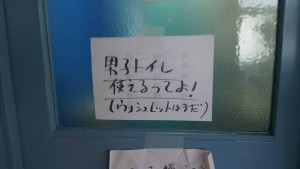 男子トイレ
使えるってよ!
(ウォシュレットはまだ)